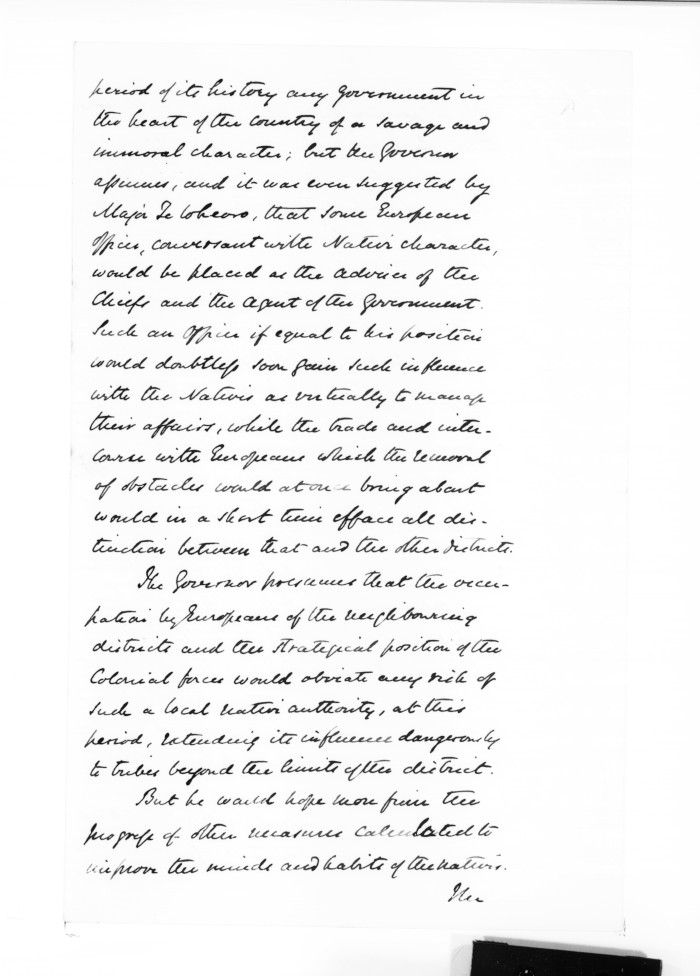 period of its history any Government in
the heart of the Country of a savage and
immoral character; but the Governor
assumes, and it was even suggested by
Major Te Wheoro, that some European
Officer, conversant with Native character,
would be placed as the adviser of the
Chiefs and the Agent of the Government.
Such an Officer if equal to his position
would doubtless soon gain such influence
with the Natives as virtually to manage
their affairs, while the trade and inter-
course with Europeans which the removal
of obstacles would at once bring about
would in a short time efface all dis-
tinction between that and the other districts.
The Governor presumes that the occu-
pation by Europeans of the neighbouring
districts and the strategical position of the
Colonial forces would obviate any risk of
such a local native authority, at this
period, extending its influence dangerously
to tribes beyond the limits of the district.
But he would hope more from the
progress of other measures calculated to
improve the minds and habits of the natives.
The